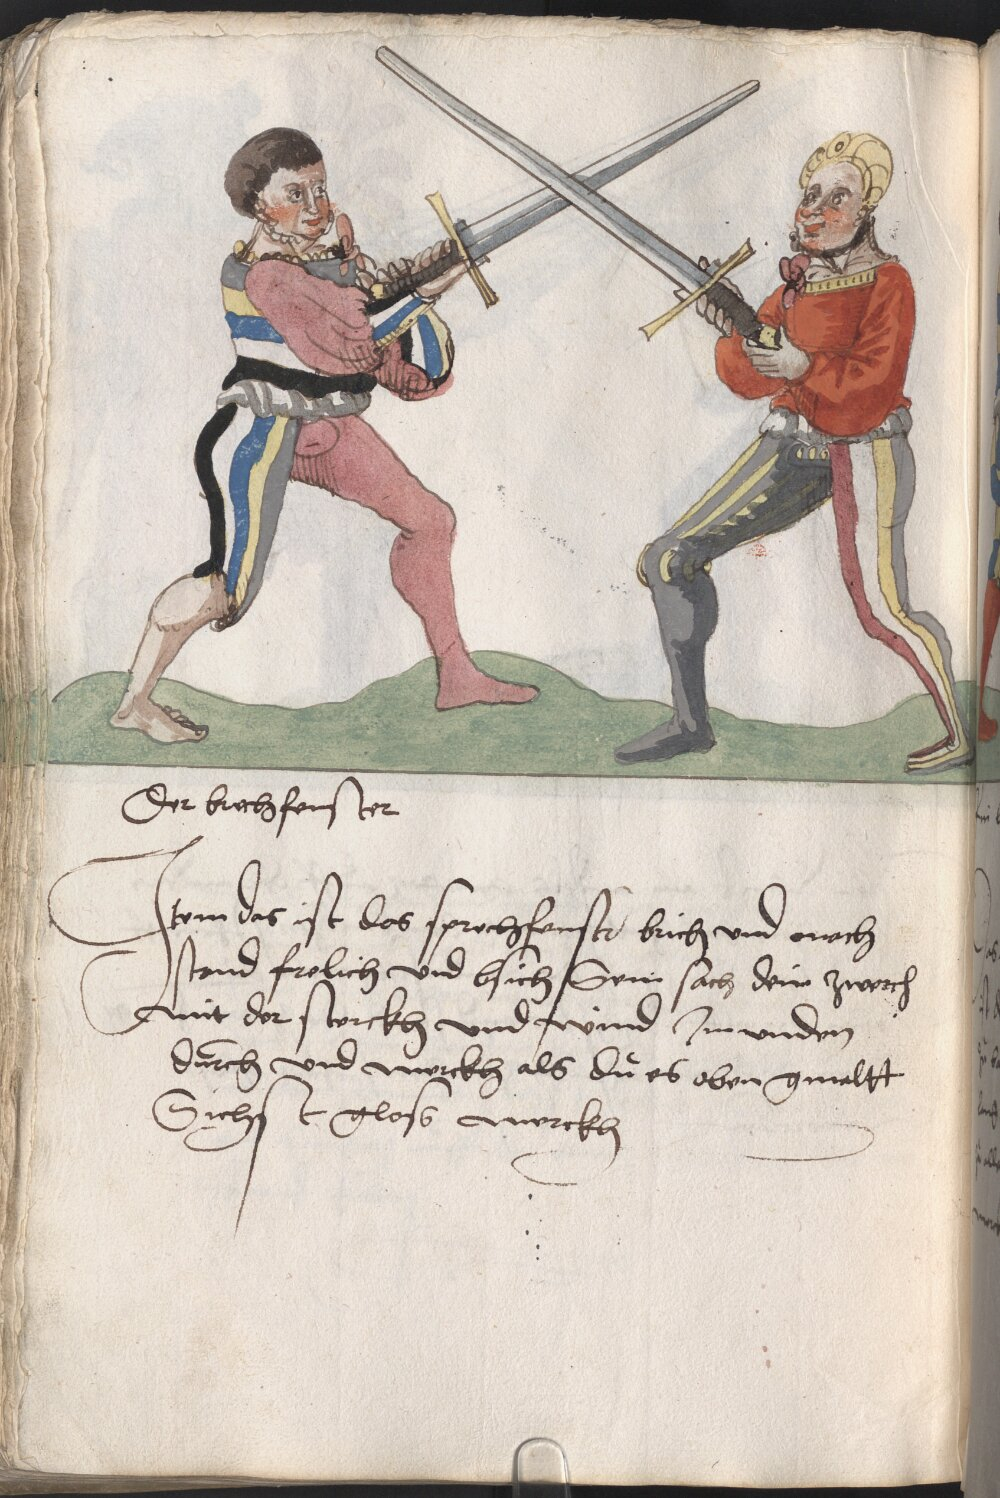 Der brechfenster
Item das ist das sprechfenster brich und mach
stand frolich und bsich Sein sach dein zwerch
mit der sterckh und wind Im unden
durch und merckh als du es oben gmaltt
Sichst glosß merckh